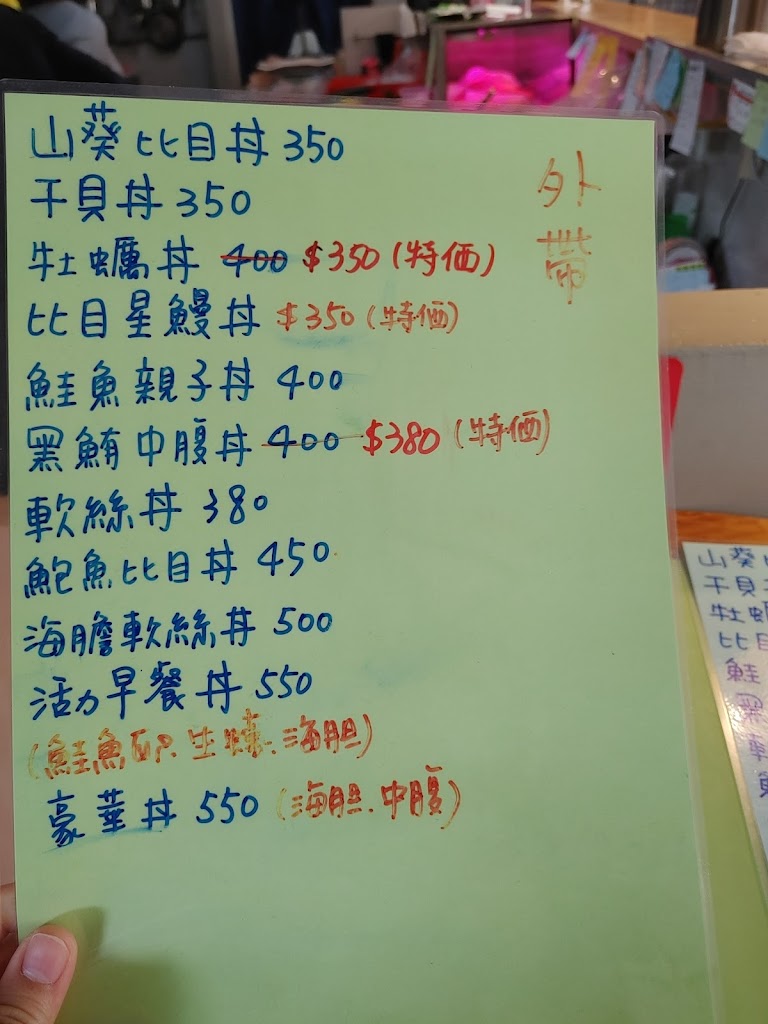 山葵比目丼 350
干貝丼 350
牡蠣丼 400 $350 (特価)
比目星鰻丼 $350 (特価)
鮭魚親子丼 400
黑鮪中腹丼 400 $380 (特価)
軟絲丼 380
鮑魚比目丼 450
海膽軟絲丼 500
活力早餐丼 550
(鮭魚卵.生蠔.海胆)
豪華丼 550 (海胆.中腹)
外帶
山葵
干貝
牡蠣
比目
鮭
黑
軟